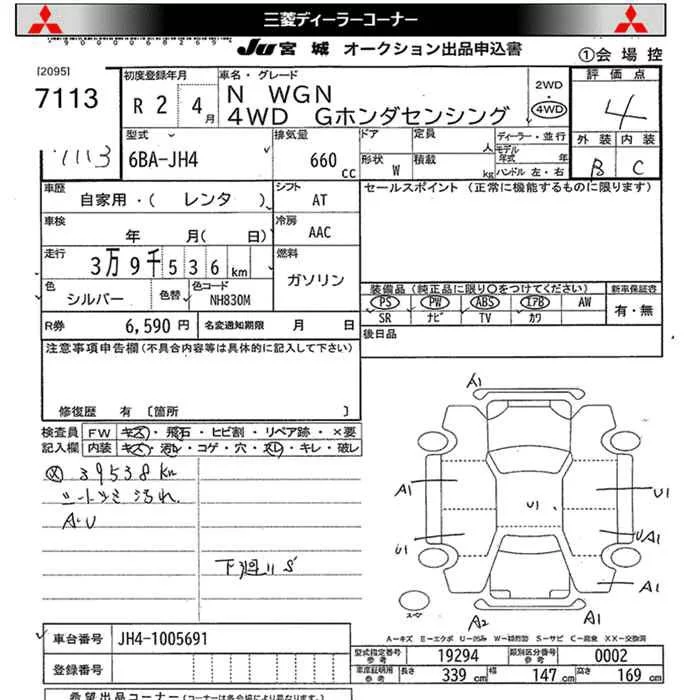 三菱ディーラーコーナー
JU 宮城 オークション出品申込書
①会場控
[2095]
7113
7113
初度登録年月
R 2 4月
車名・グレード
N WGN
4WD Gホンダセンシング
2WD・
4WD
評価点
4
外装 内装
B C
型式
6BA-JH4
排気量
660 cc
ドア
定員 人
形状 W
積載 kg
ディーラー・並行
モデル年式 年
ハンドル 左・右
車歴
自家用・( レンタ )
シフト
AT
セールスポイント (正常に機能するものに限ります)
車検
年 月( 日)
冷房
AAC
走行
3万9千536km
燃料
ガソリン
色
シルバー
色替
色コード
NH830M
装備品(純正品に限り○をつけてください)
新車保証書
PS PW ABS エアB AW
有・無
SR ナビ TV カワ
R券 6,590 円
名変通知期限 月 日
後日品
注意事項申告欄(不具合内容等は具体的に記入して下さい)
修復歴 有 〔箇所 〕
検査員記入欄
FW キズ・飛石・ヒビ割・リペア跡・×要
内装 キズ・汚れ・コゲ・穴・スレ・キレ・破レ
39538km
シートシミ汚れ
A・U
下廻りS
A1
A1
U1
U1
U1
UA1
A1
A2
A1
スペア
A-キズ E-エクボ U-凹み W-補修跡 S-サビ C-腐食 XX-交換済
車台番号 JH4-1005691
登録番号
型式指定番号 参考 19294
類別区分番号 参考 0002
車庫証明用 参考 長さ 339 cm 幅 147 cm 高さ 169 cm
希望出品コーナー(コーナーは各会場により異なります。)